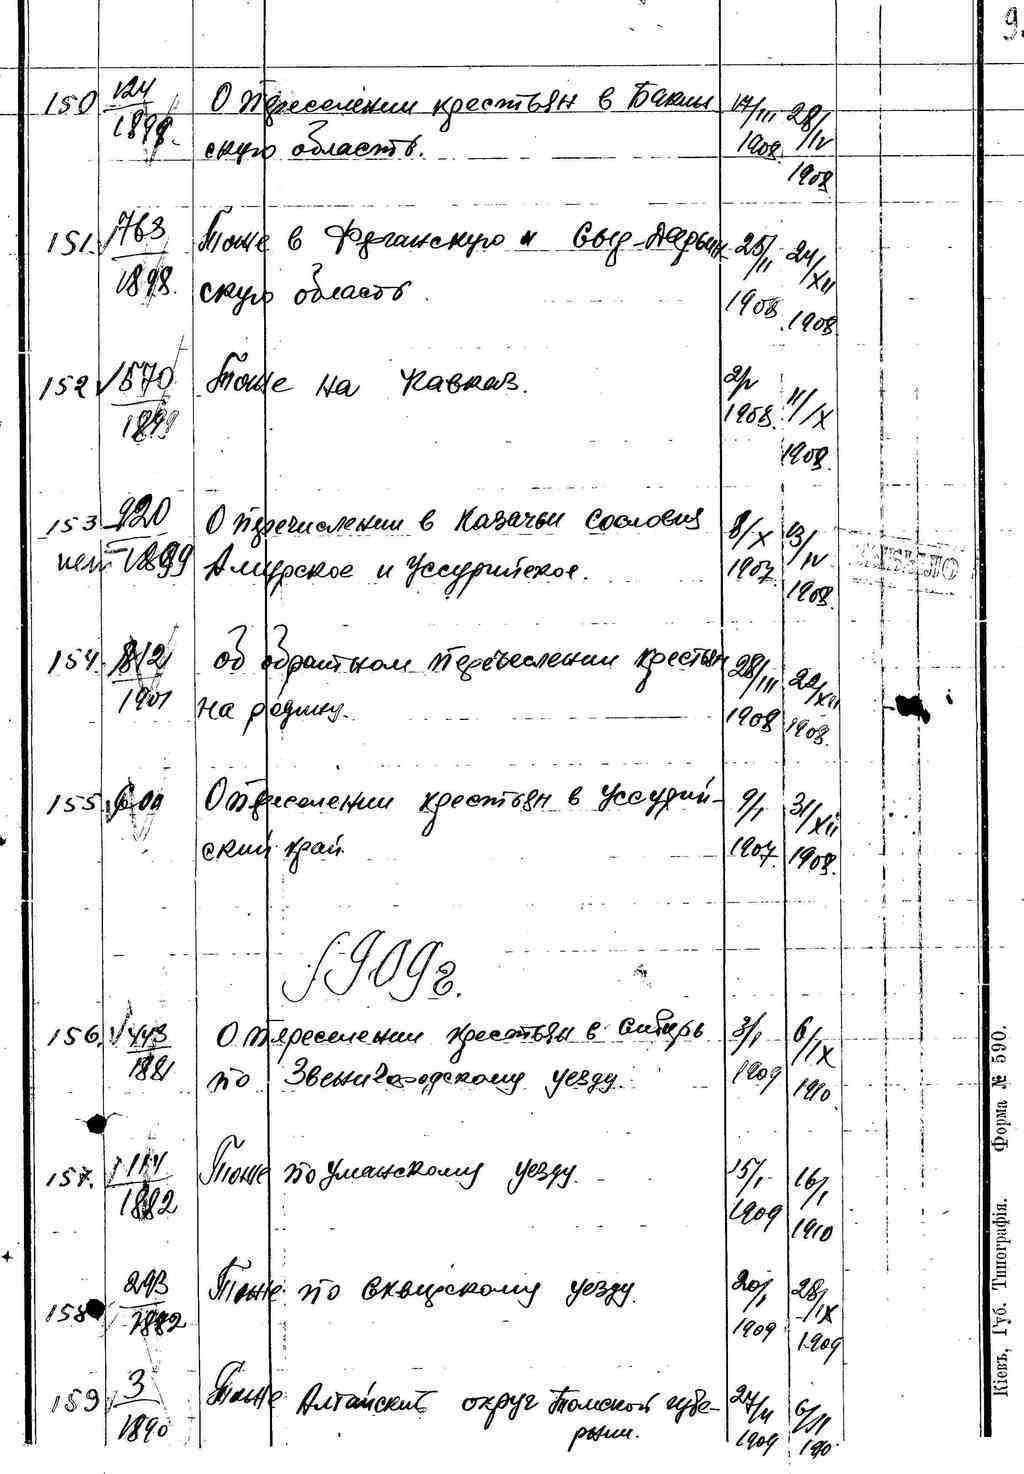 9.
150 124 О переселении крестьян в Бакин 17/III 28/IV
1898. скую область. 1908. 1908
151. 763 Тоже в Ферганскую и Сыр-Дарьин- 25/II 24/XII
1898. скую область. 1908 1908.
152 570 Тоже на Кавказ. 2/V 11/IX
1899 1908. 1908.
153 920 О перечислении в Казачьи сословия 8/X 13/IV
нет 1899 Амурское и Уссурийское. 1907. 1908.
154. 812 об обратном перечислении крестьян 28/III 22/XII
1901 на родину. 1908 1908.
155. 600 О переселении крестьян в Уссурий- 9/I 31/XII
ский край 1907. 1908.
1909 г.
156. 443 О переселении крестьян в Сибирь 3/I 6/IX
1881 по Звенигородскому уезду. 1909 1910.
157. 114 Тоже по Уманскому уезду. 15/I 16/I
1882 1909 1910
158 293 Тоже по Сквирскому уезду. 20/I 28/IX
1882 1909 1909
159 3 Тоже Алтайский округ Томской губе- 27/II 6/II
1890 рнии. 1909 1910.
Кіевъ, Губ. Типографія. Форма № 590.